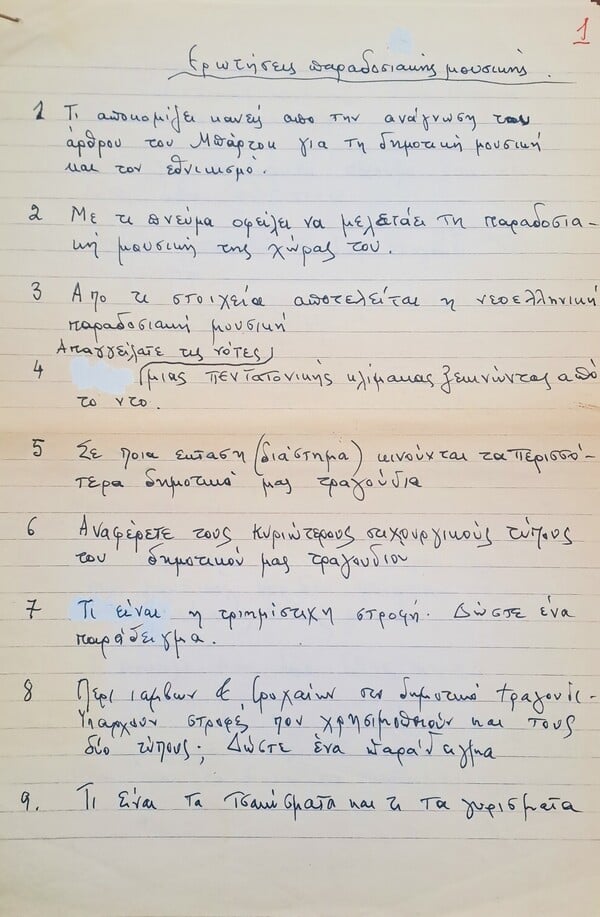 1
Ερωτήσεις παραδοσιακής μουσικής.
1 Τι αποκομίζει κανείς απο την ανάγνωση του
άρθρου του Μπάρτοκ για τη δημοτική μουσική
και τον εθνικισμό.
2 Με τι πνεύμα οφείλει να μελετάει τη παραδοσια-
κή μουσική της χώρας του.
3 Απο τι στοιχεία αποτελείται η νεοελληνική
παραδοσιακή μουσική
Απαγγείλατε τις νότες
4 μιας πεντατονικής κλίμακας ξεκινώντας από
το ντο.
5 Σε ποια εκταση (διάστημα) κινούνται τα περισσό-
τερα δημοτικά μας τραγούδια
6 Αναφέρετε τους κυριώτερους στιχουργικούς τύπους
του δημοτικού μας τραγουδιου
7 Τι είναι η τριημίστιχη στροφή. Δώστε ένα
παράδειγμα.
8 Περι ιαμβων & τροχαίων στο δημοτικό τραγούδι-
Υπαρχουν στροφές που χρησιμοποιούν και τους
δύο τύπους; Δώστε ένα παράδειγμα
9. Τι είναι τα τσακίσματα και τι τα γυρίσματα